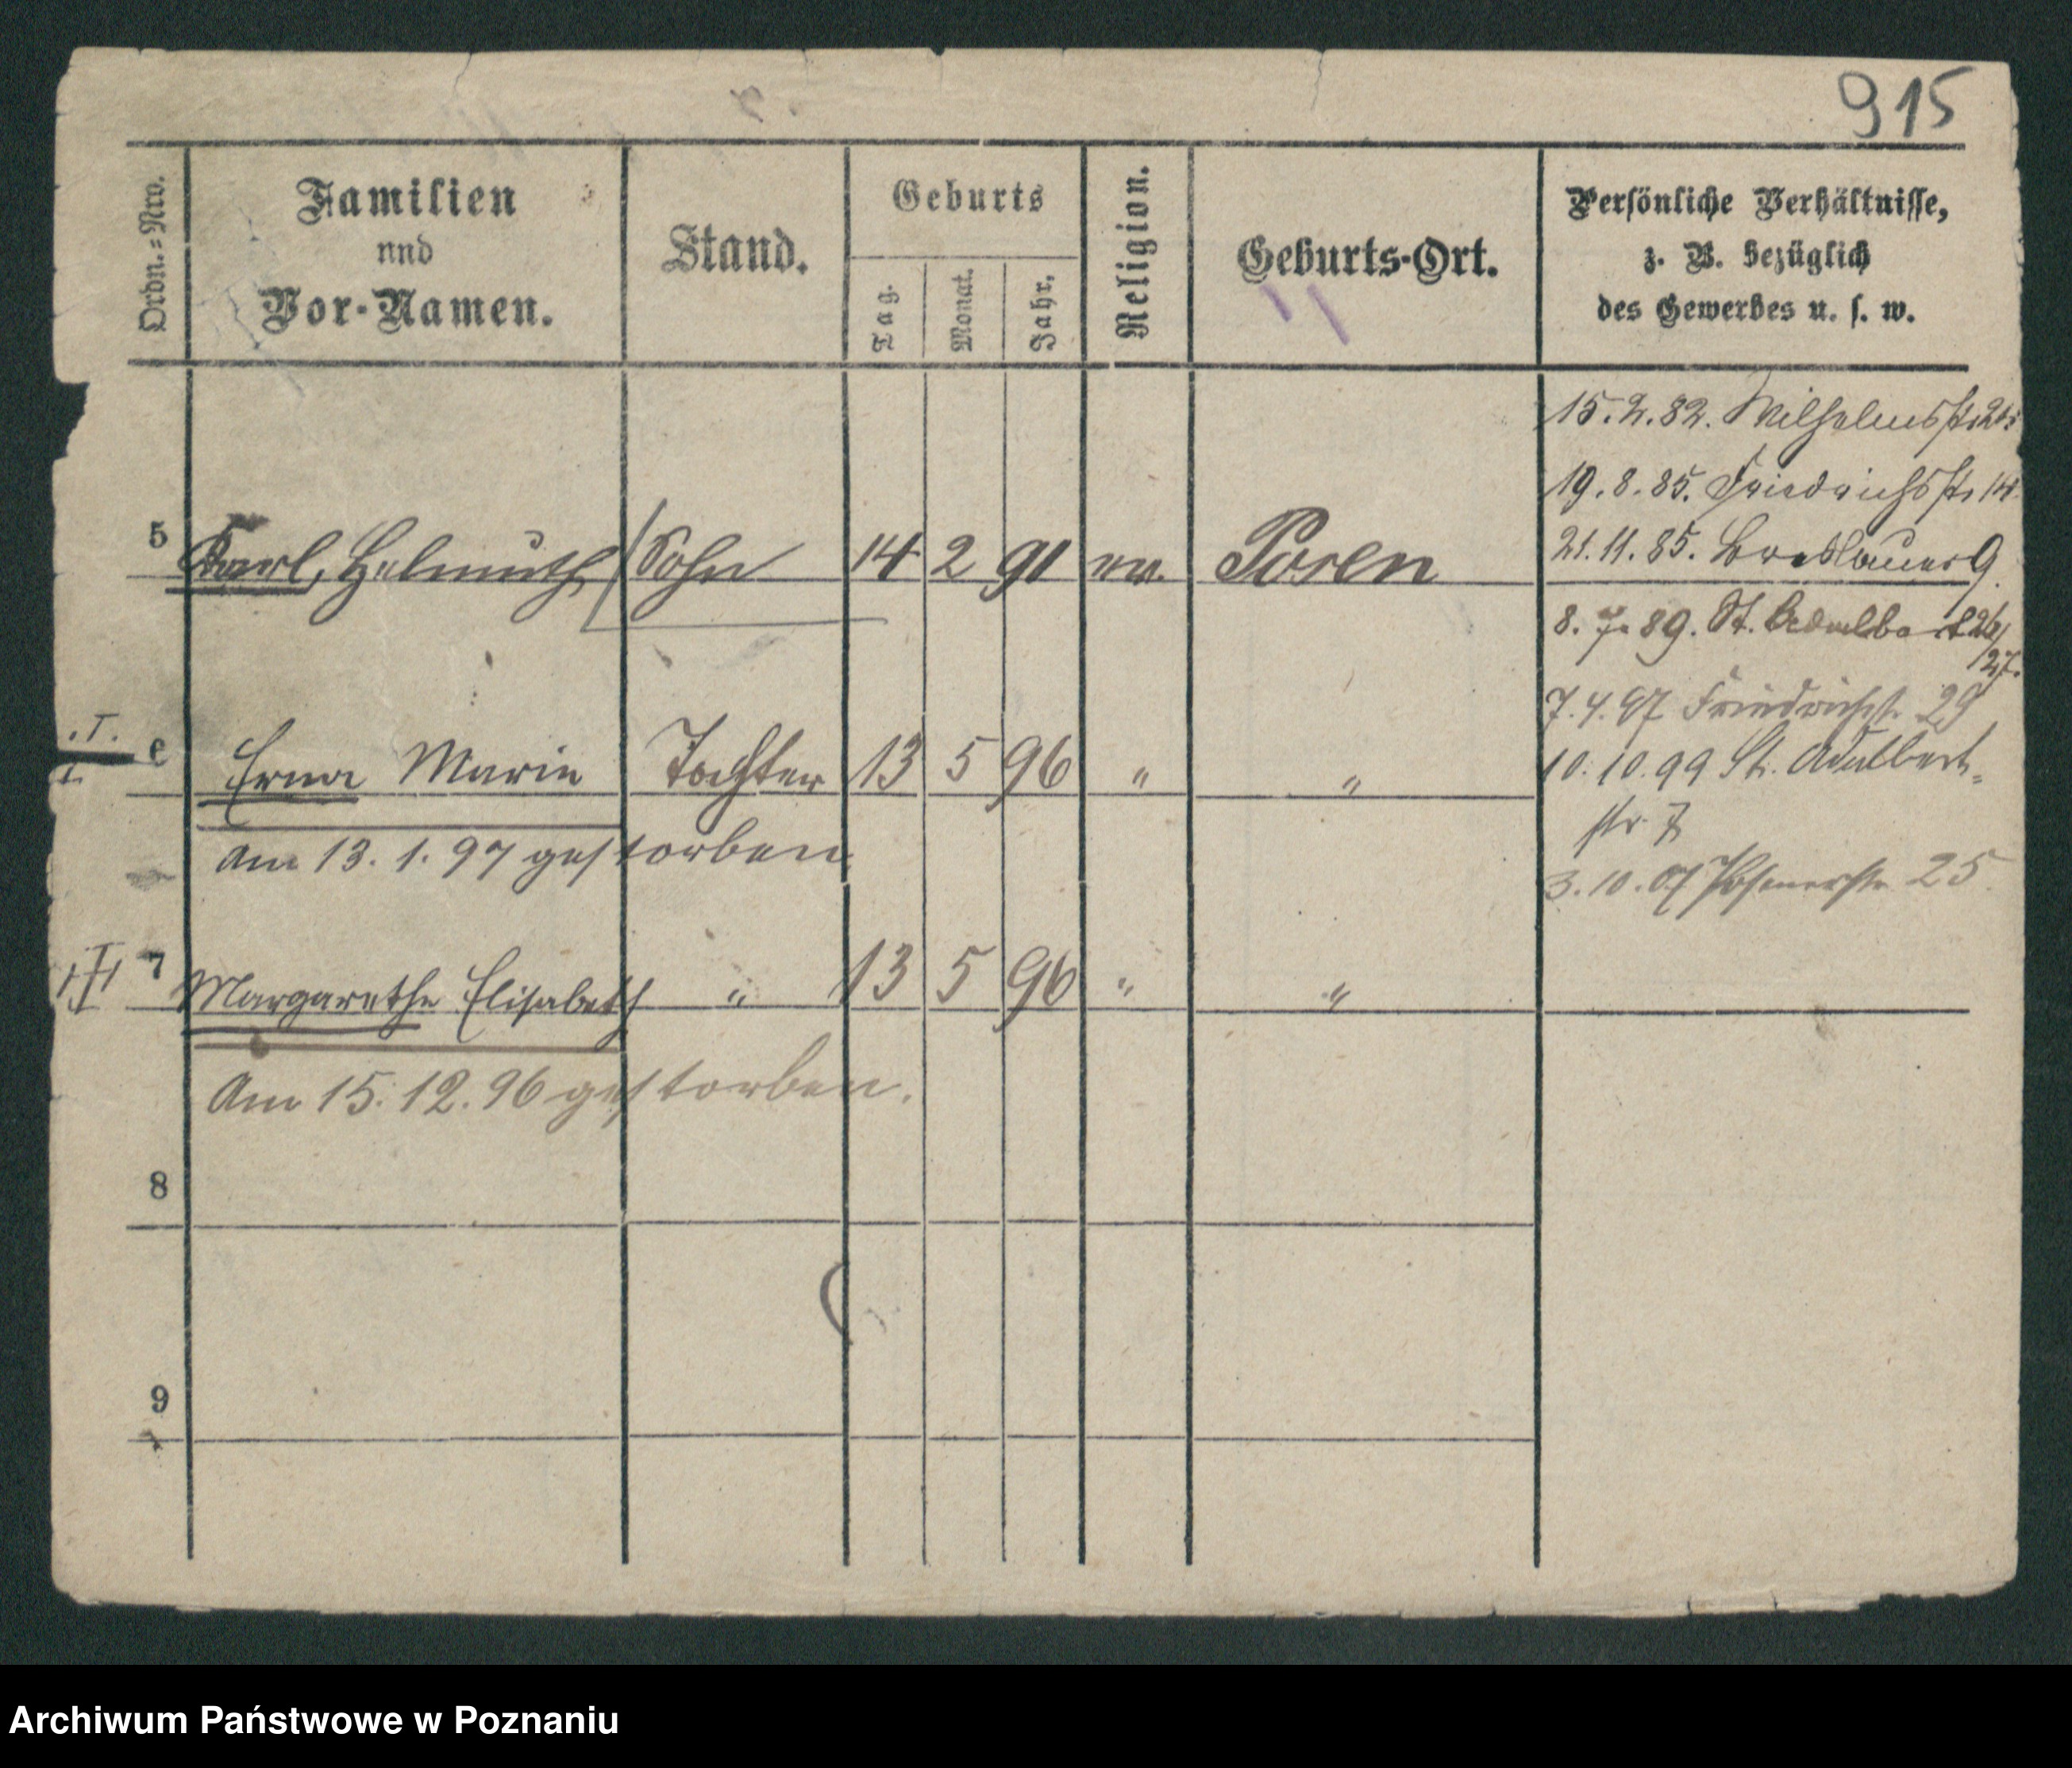 915
Ordn.=Nro.
Familien
und
Vor-Namen.
Stand.
Geburts
Tag.
Monat.
Jahr.
Religion.
Geburts-Ort.
Persönliche Verhältnisse,
z. B. bezüglich
des Gewerbes u. s. w.
15.2.82. Wilhelmsstr.
19.8.85. Friedrichsstr 14.
5 Karl, Helmuth Sohn 14 2 91 ev. Posen
21.11.85. Breslauer 9.
8.7.89. St. Adalbert 26/
27.
7.4.97 Friedrichst. 29
I. 6 Erna Marie Tochter 13 5 96 " "
10.10.99 St. Adalbert-
str. 7
am 13.1.97 gestorben.
3.10.07 Posenerstr 25.
II 7 Margarethe Elisabeth " 13 5 96 " "
Am 15.12.96 gestorben.
8
9
Archiwum Państwowe w Poznaniu